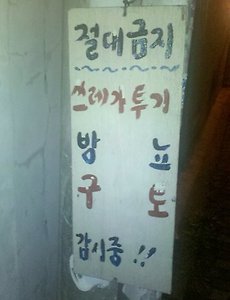 절대금지
쓰레기투기
방 뇨
구 토
감시중 !!